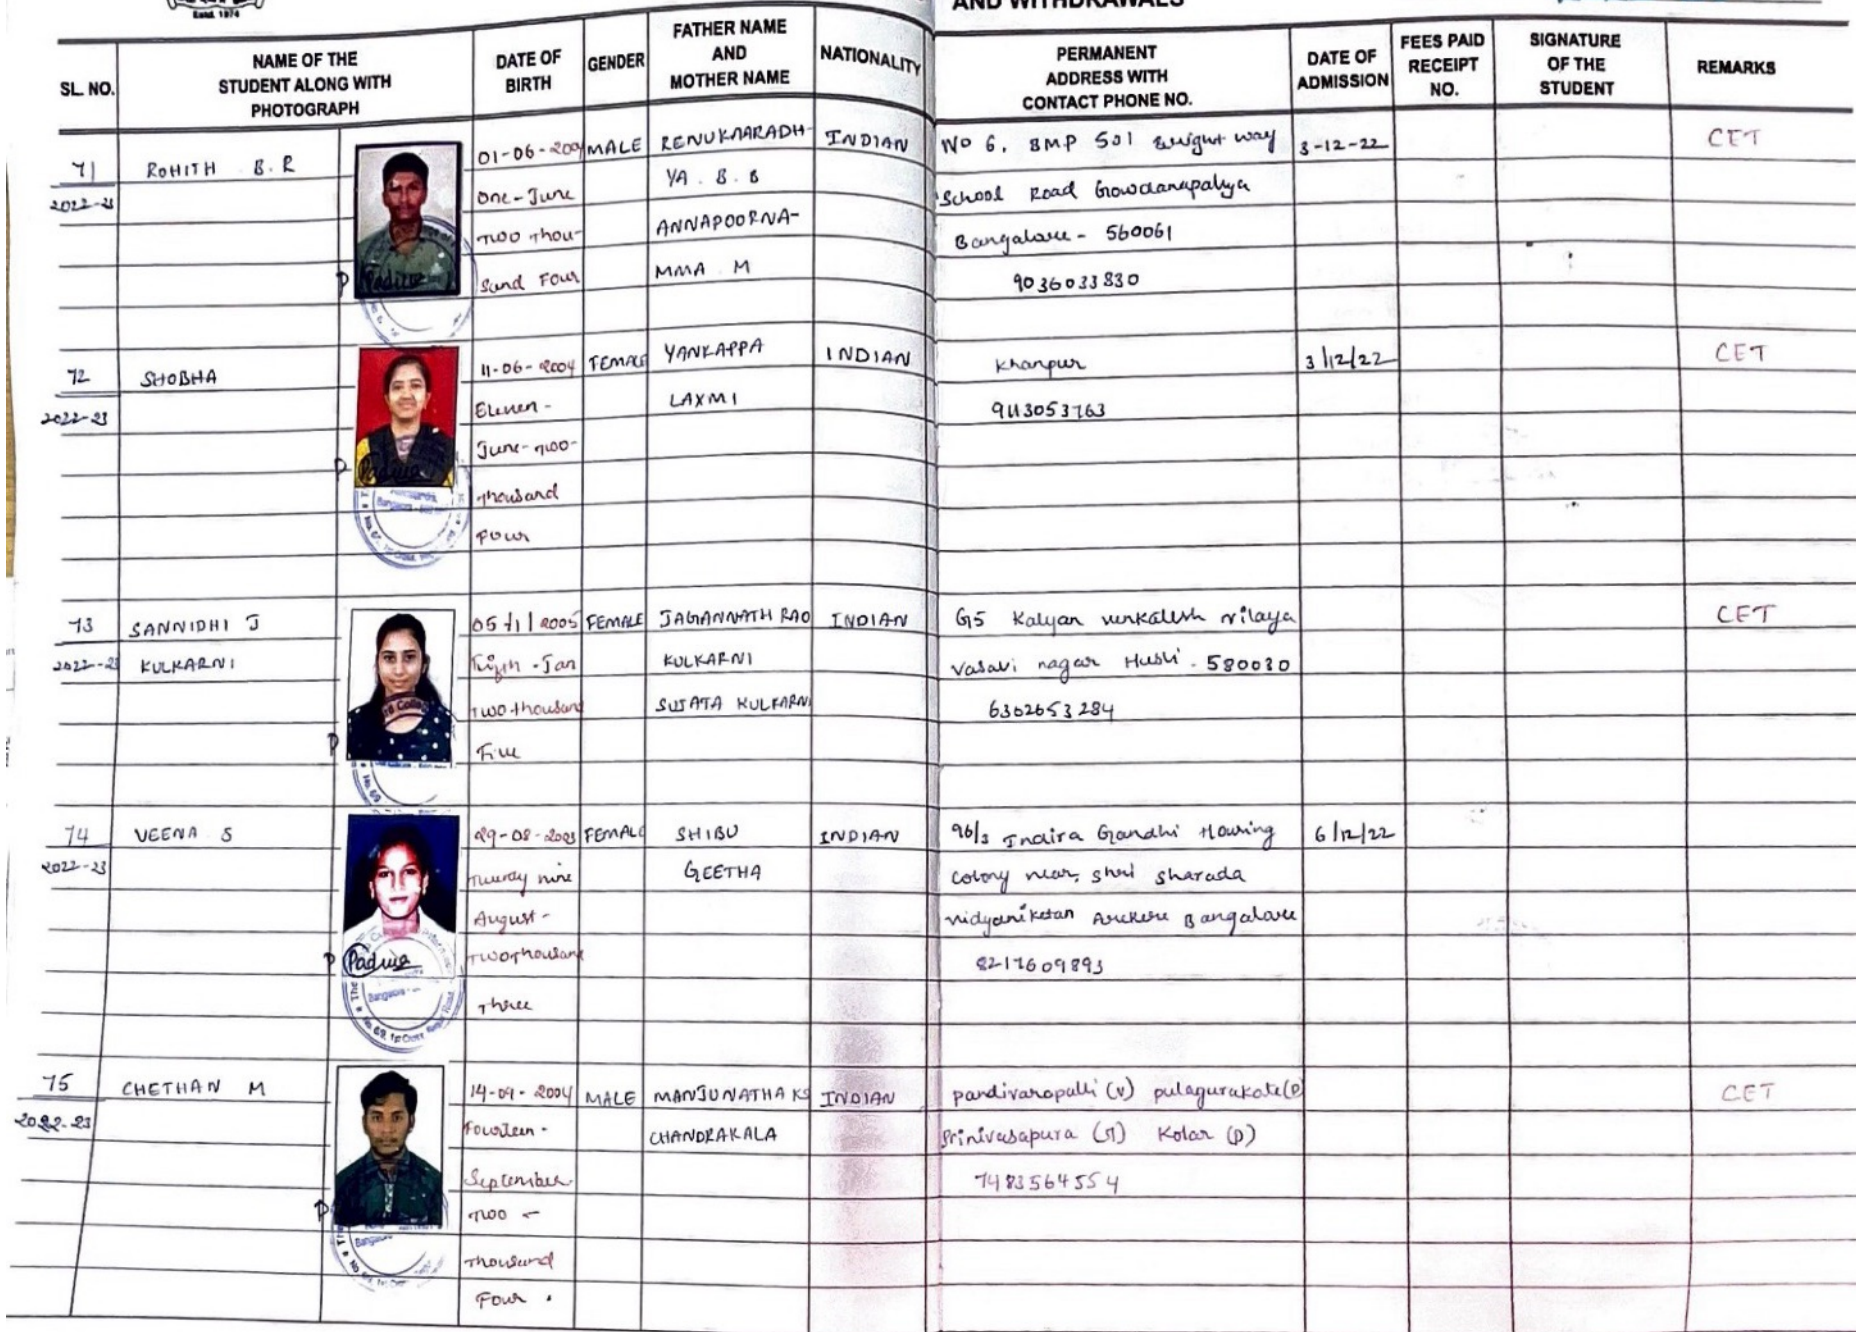 Estd. 1974
AND WITHDRAWALS
SL. NO.
NAME OF THE
STUDENT ALONG WITH
PHOTOGRAPH
DATE OF
BIRTH
GENDER
FATHER NAME
AND
MOTHER NAME
NATIONALITY
PERMANENT
ADDRESS WITH
CONTACT PHONE NO.
DATE OF
ADMISSION
FEES PAID
RECEIPT
NO.
SIGNATURE
OF THE
STUDENT
REMARKS
71
2022-23
ROHITH B.R
01-06-2004
One-June
Two Thou-
Sand Four
MALE
RENUKAARADH-
YA. B. B
ANNAPOORNA-
MMA. M
INDIAN
No 6, BMP 501 way
School Road Gowdanapalya
Bangalore - 560061
9036033830
3-12-22
CET
72
2022-23
SHOBHA
11-06-2004
Eleven -
June-Two-
Thousand
Four
FEMALE
YANKAPPA
LAXMI
INDIAN
Khanpur
9113053763
3/12/22
CET
73
2022-23
SANNIDHI J
KULKARNI
05/1/2005
Fifth - Jan
Two thousand
Five
FEMALE
JAGANNATH RAO
KULKARNI
SUJATA KULKARNI
INDIAN
G5 Kalyan venkatesh nilaya
Vasavi nagar Hubli - 580030
6302653284
CET
74
2022-23
VEENA S
29-08-2003
Twenty nine
August -
Two thousand
Three
FEMALE
SHIBU
GEETHA
INDIAN
96/3 Indira Gandhi Housing
colony near, shri sharada
vidyaniketan Arekere Bangalore
8217609893
6/12/22
75
2022-23
CHETHAN M
14-09-2004
Fourteen -
September
Two -
Thousand
Four .
MALE
MANJUNATHA KS
CHANDRAKALA
INDIAN
pandivaropalli (v) pulagurakote (P)
Srinivasapura (T) Kolar (D)
7483564554
CET